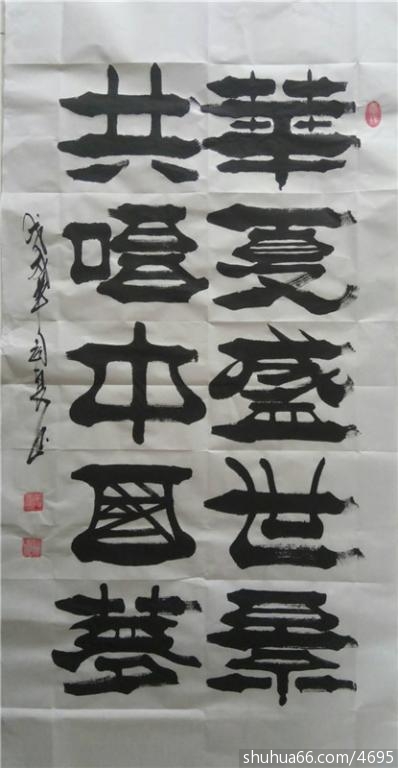 華夏盛世景
共唱中國夢
戊戌年
shuhua66.com/4695